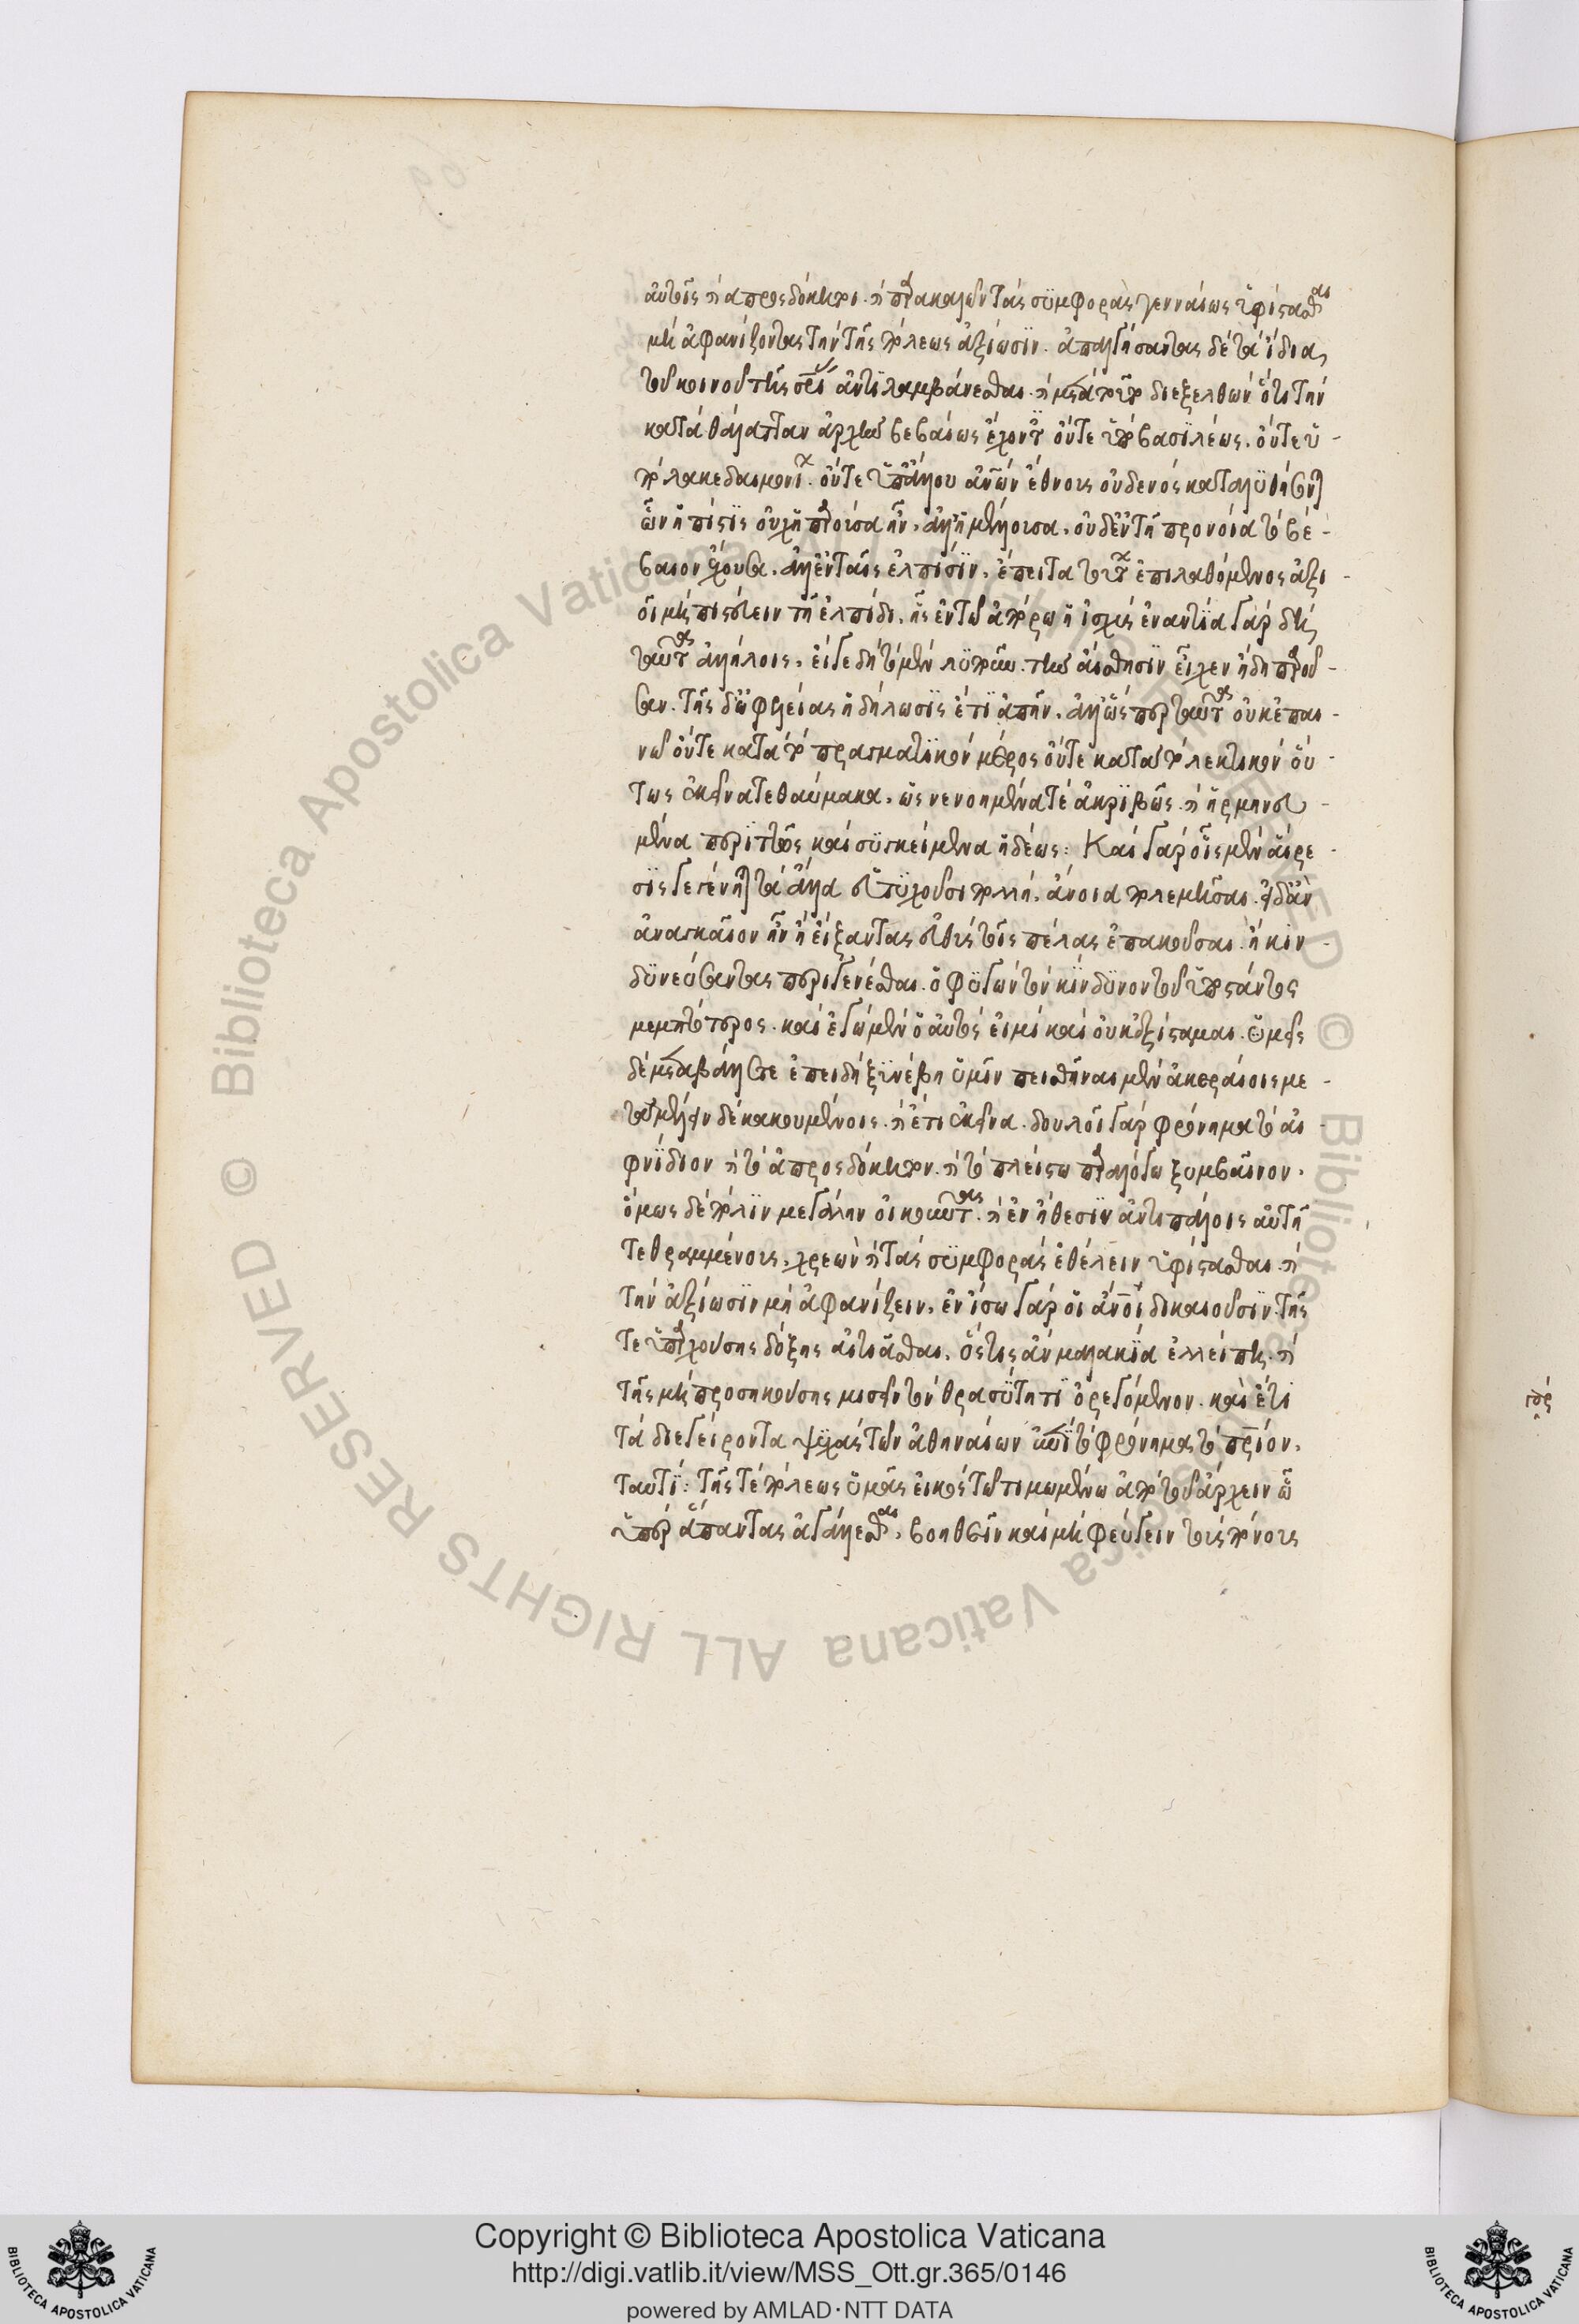 αὐτοῖς ἡ ἀπροσδόκητος. ἡ παρακαλεῖν τὰς συμφορὰς γενναίως ὑφίστασθαι
μὴ ἀφανίζοντας τὴν τῆς πόλεως ἀξίωσιν. ἀπαλγήσαντας δὲ τὰ ἴδια,
τοῦ κοινοῦ τῆς σωτηρίας ἀντιλαμβάνεσθαι. διεξελθὼν ὅτι τὴν
κατὰ θάλατταν ἀρχὴν βεβαίως ἔχοντες οὔτε ὑπὸ βασιλέως. οὔτε ὑ-
πὸ λακεδαιμονίων. οὔτε ὑπ' ἄλλου ἀνθρώπων ἔθνους οὐδενὸς καταλυθήσονται
ὧν ἡ πίστις οὐχ ἡ παροῦσα ἦν. ἀλλ' ἡ μέλλουσα. οὐδ' ἐν τῇ προνοίᾳ τὸ βέ-
βαιον ἔχουσα. ἀλλ' ἐν ταῖς ἐλπίσιν. ἔπειτα τούτων ἐπιλαθόμενος ἀξι-
οῖ μὴ πιστεύειν τῇ ἐλπίδι. ἧς ἐν τῷ ἀπόρῳ ἡ ἰσχύς ἐναντία γὰρ δὴ
ταῦτα ἀλλήλοις. εἴ γε δὴ τὸ μὲν λυποῦν τὴν αἴσθησιν εἶχεν ἤδη παροῦ-
σαν. τῆς δ' ὠφελείας ἡ δήλωσις ἔτι ἀπῆν. ἀλλ' ὥσπερ ταῦτα οὐκ ἐπαι-
νῶ οὔτε κατὰ τὸ πραγματικὸν μέρος οὔτε κατὰ τὸ λεκτικὸν οὕ-
τως ἐκεῖνα τεθαύμακα. ὡς νενοημένα τε ἀκριβῶς. ἡρμηνευ-
μένα περιττῶς καὶ συγκείμενα ἡδέως: Καὶ γὰρ οἷς μὲν αἵρε-
σις γεγένηται τὰ ἄλλα εὐτυχοῦσι πολλὴ. ἄνοια πολεμῆσαι. εἰ δ' ἂν
ἀναγκαῖον ἦν ἢ εἴξαντας εὐθὺς τοῖς πέλας ἐπακοῦσαι. ἢ κιν-
δυνεύσαντας περιγενέσθαι. ὁ φυγὼν τὸν κίνδυνον τοῦ ὑποστάντος
μεμπτότερος. καὶ ἐγὼ μὲν ὁ αὐτός εἰμι καὶ οὐκ ἐξίσταμαι. ὑμεῖς
δὲ μεταβάλλετε ἐπειδὴ ξυνέβη ὑμῖν πεισθῆναι μὲν ἀκεραίοις με-
ταμέλειν δὲ κακουμένοις. ἔτι ἐκεῖνα. δουλοῖ γὰρ φρόνημα τὸ αἰ-
φνίδιον καὶ τὸ ἀπροσδόκητον. καὶ τὸ πλείστῳ παραλόγῳ ξυμβαῖνον.
ὅμως δὲ πόλιν μεγάλην οἰκοῦντας. καὶ ἐν ἤθεσιν ἀντιπάλοις αὐτῇ
τεθραμμένους. χρεὼν καὶ τὰς συμφορὰς ἐθέλειν ὑφίστασθαι. καὶ
τὴν ἀξίωσιν μὴ ἀφανίζειν. ἐν ἴσῳ γὰρ οἱ ἄνθρωποι δικαιοῦσιν. τῆς
τε ὑπαρχούσης δόξης αἰτιᾶσθαι. ὅστις ἂν μαλακίᾳ ἐλλείπῃ. καὶ
τῆς μὴ προσηκούσης μισεῖν τὸν θρασύτητι ὀρεγόμενον. καὶ ἔτι
τὰ διεγείροντα ψυχὰς τῶν ἀθηναίων ἐπὶ τὸ φρόνημα τὸ πάτριον.
ταυτί: τῆς τε πόλεως ὑμᾶς εἰκὸς τῷ τιμωμένῳ ἀπὸ τοῦ ἄρχειν ᾧ
ὑπὲρ ἅπαντας ἀγάλλεσθαι. βοηθεῖν καὶ μὴ φεύγειν τοὺς πόνους
Copyright © Biblioteca Apostolica Vaticana
http://digi.vatlib.it/view/MSS_Ott.gr.365/0146
powered by AMLAD·NTT DATA